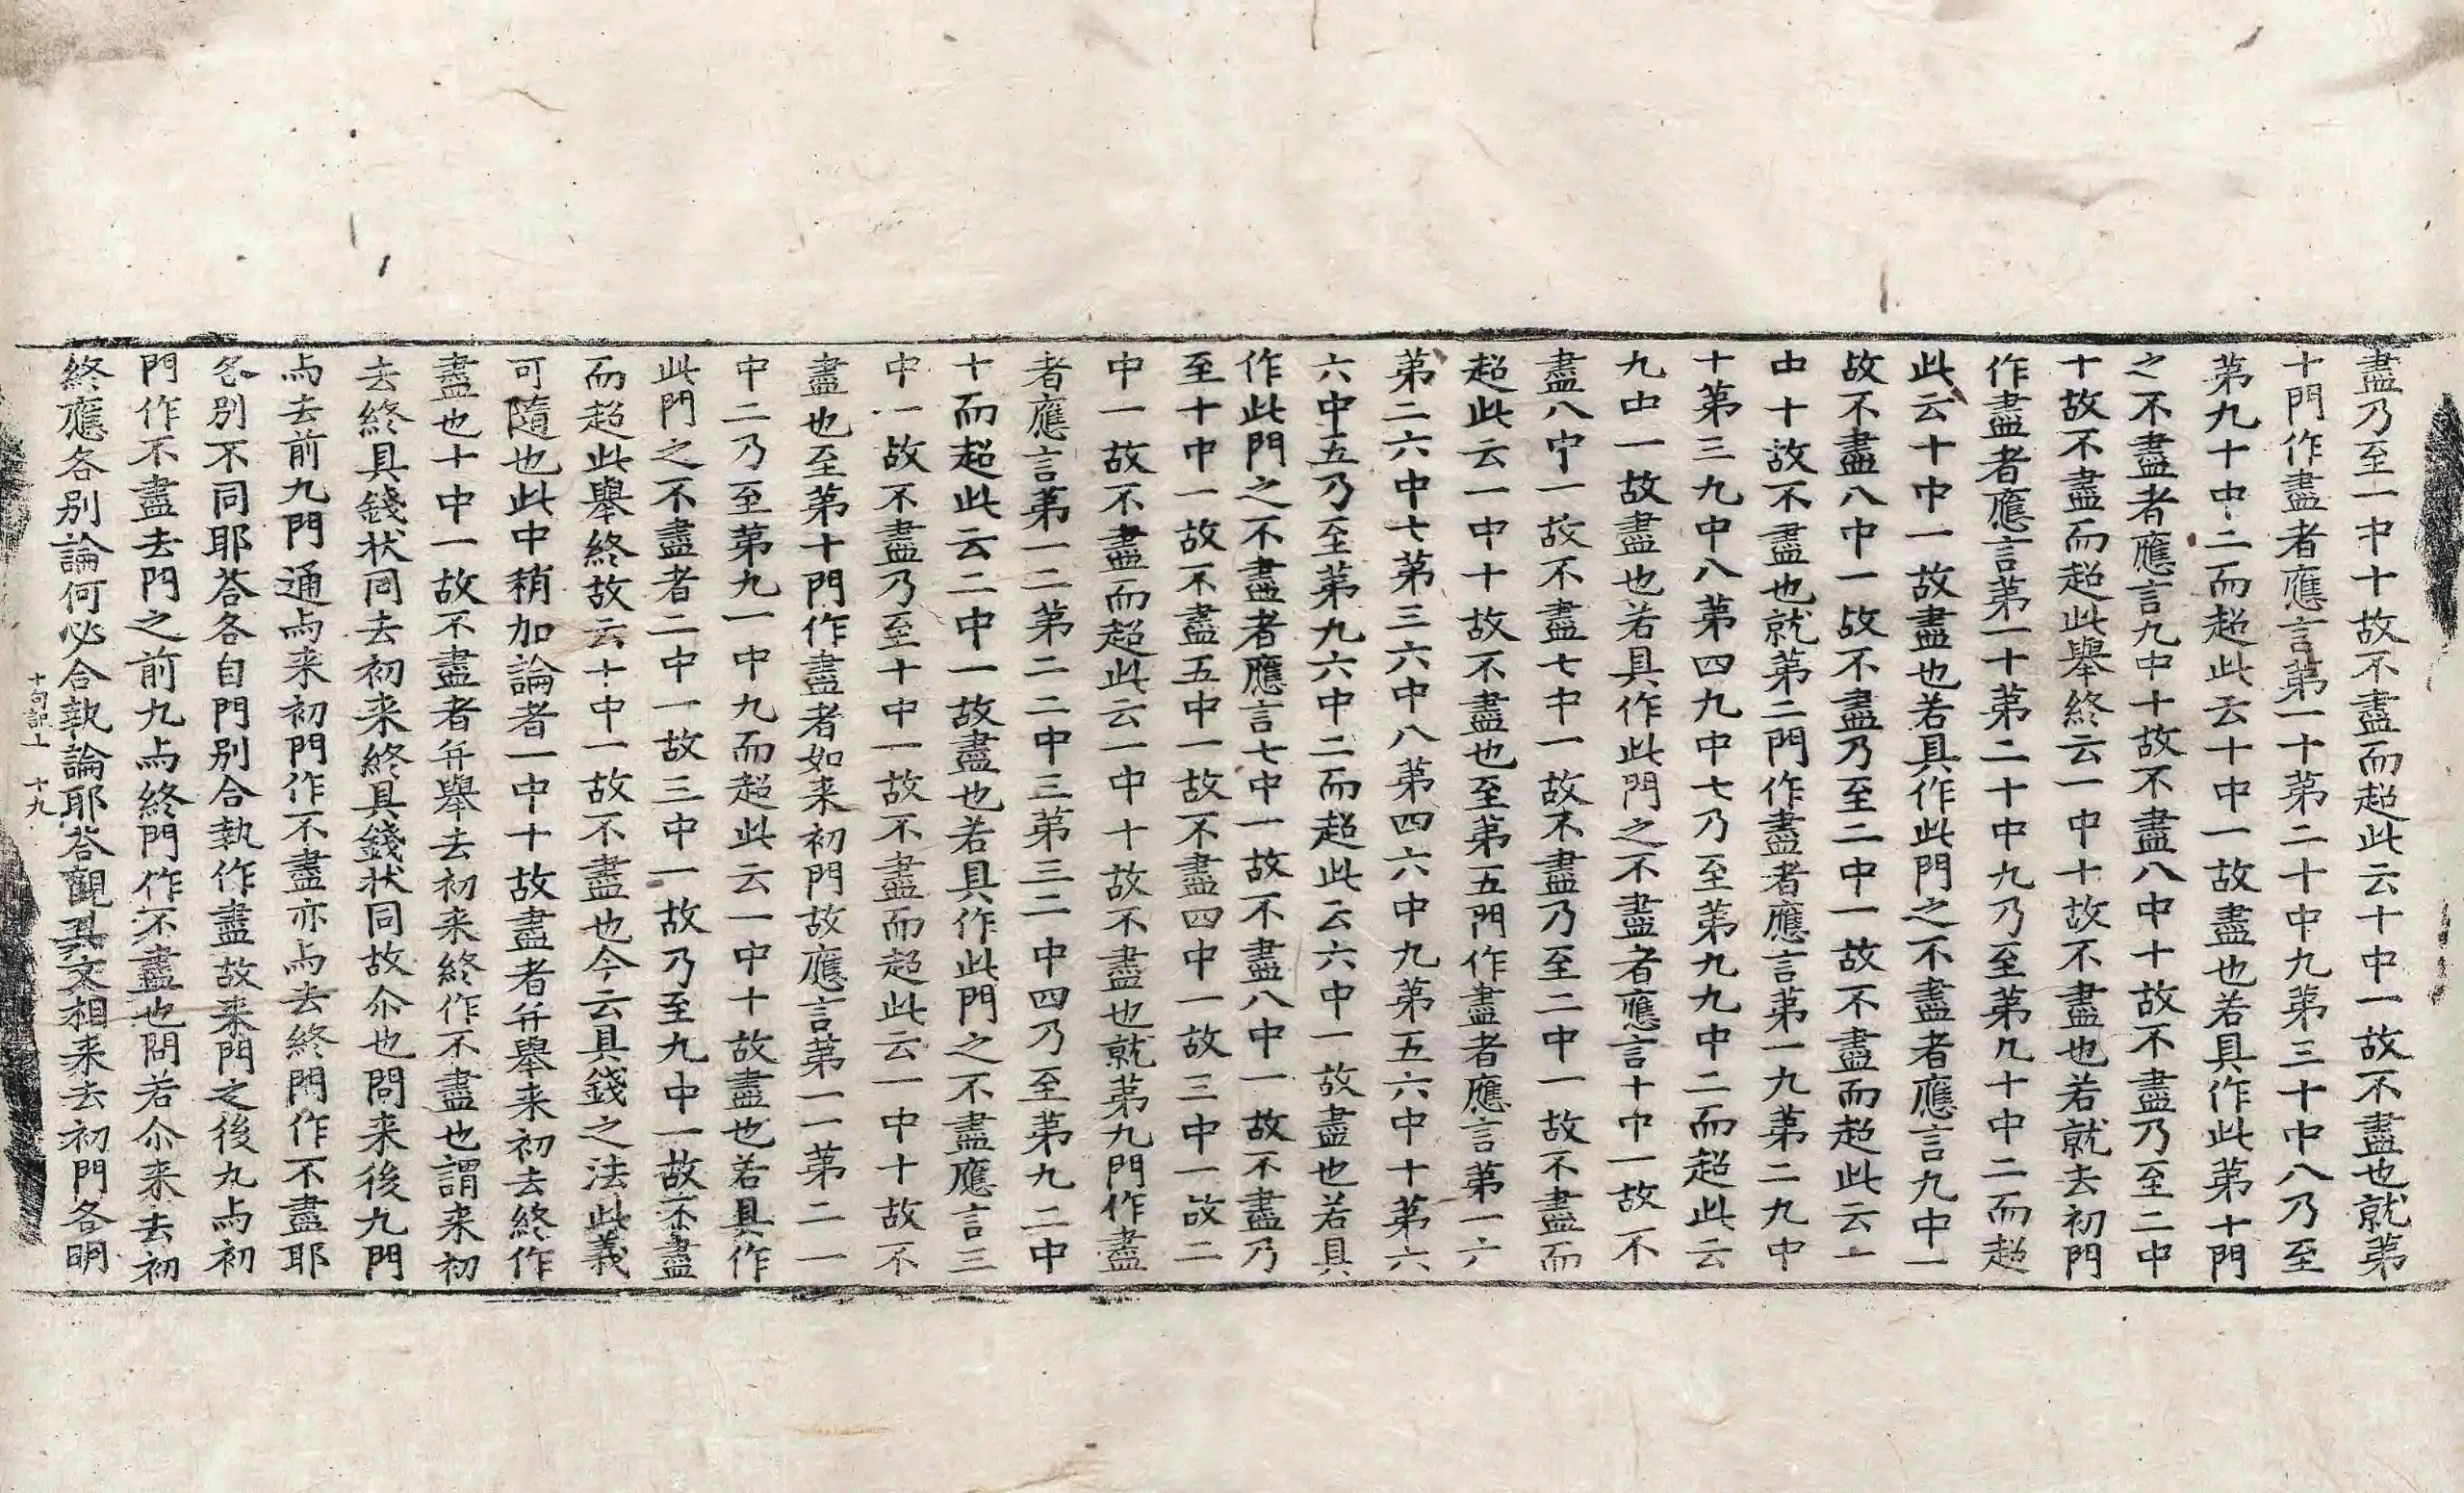 盡乃至一中十故不盡而超此云十中一故不盡也就第
十門作盡者應言第一十第二十中九第三十中八乃至
第九十中二而超此云十中一故盡也若具作此第十門
之不盡者應言九中十故不盡八中十故不盡乃至二中
十故不盡而超此舉終云一中十故不盡也若就去初門
作盡者應言第一十第二十中九乃至第九十中二而超
此云十中一故盡也若具作此門之不盡者應言九中一
故不盡八中一故不盡乃至二中一故不盡而超此云一
中十故不盡也就第二門作盡者應言第一九第二九中
十第三九中八第四九中七乃至第九九中二而超此云
九中一故盡也若具作此門之不盡者應言十中一故不
盡八中一故不盡七中一故不盡乃至二中一故不盡而
超此云一中十故不盡也至第五門作盡者應言第一六
第二六中七第三六中八第四六中九第五六中十第六
六中五乃至第九六中二而超此云六中一故盡也若具
作此門之不盡者應言七中一故不盡八中一故不盡乃
至十中一故不盡五中一故不盡四中一故三中一故二
中一故不盡而超此云一中十故不盡也就第九門作盡
者應言第一二第二二中三第三二中四乃至第九二中
十而超此云二中一故盡也若具作此門之不盡應言三
中一故不盡乃至十中一故不盡而超此云一中十故不
盡也至第十門作盡者如来初門故應言第一一第二一
中二乃至第九一中九而超此云一中十故盡也若具作
此門之不盡者二中一故三中一故乃至九中一故不盡
而超此舉終故云十中一故不盡也今云具錢之法此義
可隨也此中稍加論者一中十故盡者弁舉来初去終作
盡也十中一故不盡者弁舉去初来終作不盡也謂来初
去終具錢状同去初来終具錢状同故尒也問来後九門
与去前九門通与来初門作不盡亦与去終門作不盡耶
各別不同耶荅各自門別合執作盡故来門之後九与初
門作不盡去門之前九与終門作不盡也問若尒来去初
終應各別論何必合執論耶荅觀其文相来去初門各明
十句記上 十九